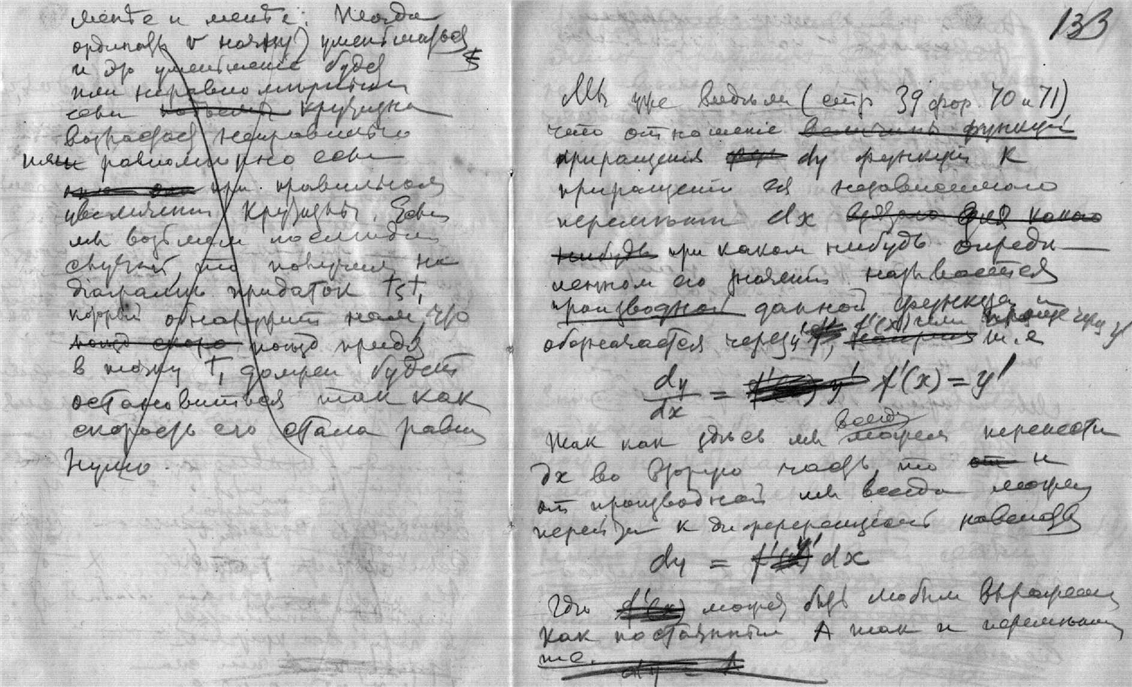 менте и менте. Тогда
ордината v начну уменьшаться
и др уменьшение будет
или неравномерным
если крузизна
возрастает неправильно
или равномерно если
при правильном
увеличении крузизны. Если
мы возьмем последний
случай, то получим на
діаграмме придаток t₅t,
который обнаружит нам, что
поезд придя
в точку t, должен будет
остановиться так как
скорость его стала равна
нулю.
133
Мы уже видели (стр 39 фор. 70 и 71)
что отношение величины функции
приращения dy функции к
приращению независимого
переменного dx
нибудь при каком нибудь опреде-
ленном его значении называется
производной данной функции и
обозначается через y', f'(x) или т.е
dy/dx = f'(x) = y'
Так как здесь мы всегда можем перенести
dx во вторую часть, то и
от производной мы всегда можем
перейти к дифференциалу написав
dy = y' dx
Где f'(x) может быть любым выражением
как постоянным A так и переменным
dy = A